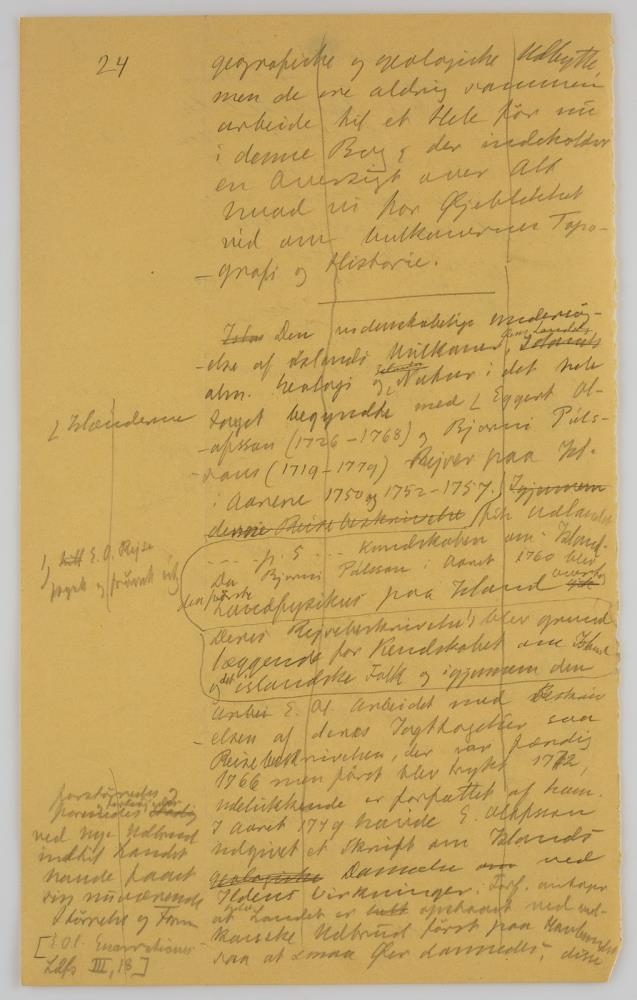 24
geografiske og geologiske Udbytte,
men de ere aldrig sammen
arbeidet til et Hele før nu
i denne Bog, der indeholder
en Oversigt over Alt
hvad vi for Øjeblikket
ved om Vulkanernes Topo-
grafi og Historie.
Den videnskabelige undersøg-
else af Islands Vulkaner,
alm. Geologi og Natur i det hele
taget begyndte med Eggert Ol-
afsson (1726-1768) og Bjarni Páls-
sons (1719-1779) Rejser paa Isl.
i Aarene 1750 og 1752-1757. Igjennem
denne Reisebeskrivelse fik Udlandet
p. 5 Kundskaben om Island
Da Bjarni Pálsson i Aaret 1760 blev
den første
Landfysikus paa Island
Deres Rejsebeskrivelse blev grund
læggende for Kendskabet om Island
og det islandske Folk og igjennem den
E. Ol. arbeidet med Beskriv
elsen af deres Iagttagelser saa
Reisebeskrivelsen, der var færdig
1766 men først blev trykt 1772,
udelukkende er forfattet af ham.
I Aaret 1749 havde E. Olafsson
udgivet et Skrift om Islands
geologiske Dannelse ved
Ildens Virkninger.
at Landet er opstaaet ved vul-
kanske Udbrud først paa Havbunden
saa at smaa Øer dannedes, disse
Islænderne
E. O. Rejse
trykt og
forstørredes og
ved nye Udbrud
indtil Landet
havde faaet
sin nuværende
Størrelse og Form
[E Ol. Enarrationes
Lbfs III, 18]